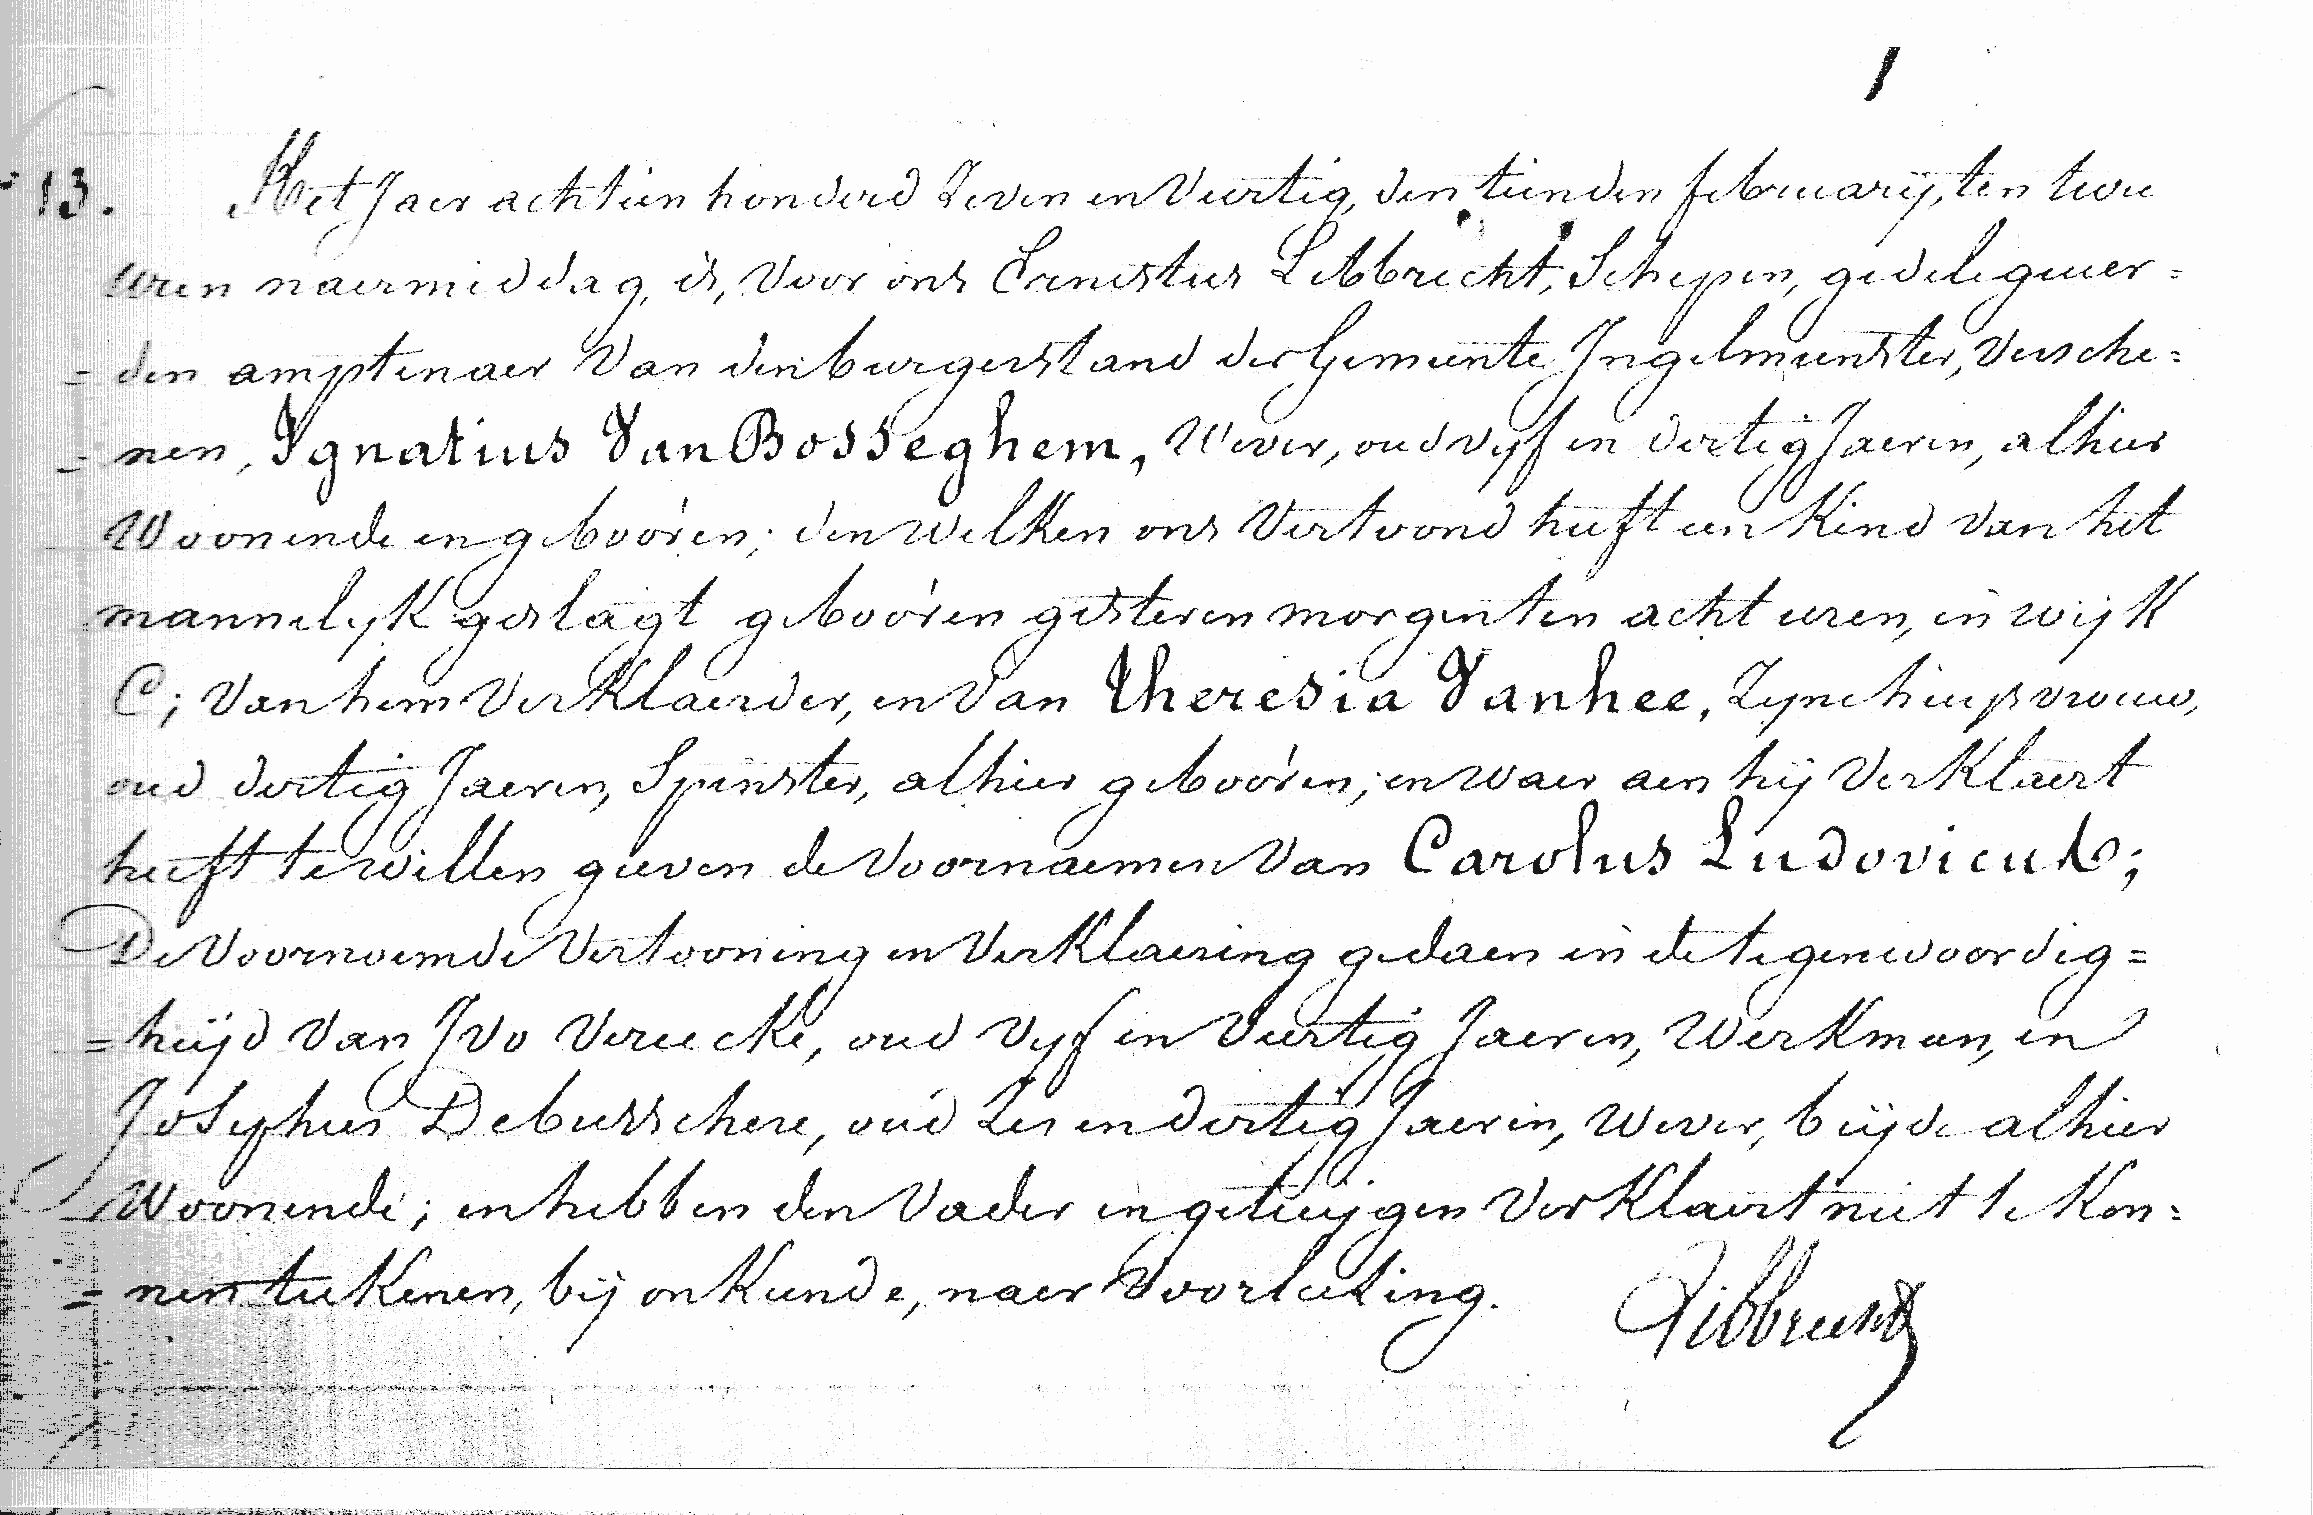 13. Het Jaer achttien honderd Zeven en Veertig, den tienden february, ten twee
uren naermiddag, is, Voor ons Ernestus Libbrecht, Schepen, gedelegueer=
=den amptenaer Van den burgerstand der Gemeente Ingelmunster, Versche=
=nen, Ignatius VanBosseghem, Wever, oud vyf en dertig Jaeren, alhier
Woonende en gebooren; den welken ons Vertoond heeft een Kind Van het
mannelyk geslagt gebooren gisteren morgen ten acht uren, in wijk
C; Van hem Verklaerder, en Van Theresia Vanhee, Zyne huysvrouw,
oud dertig Jaeren, Spinster, alhier gebooren; en waer aen hij Verklaert
heeft te willen geeven de Voornaemen Van Carolus Ludovicus;
De Voornoemde Vertooning en Verklaering gedaen in de tegenwoordig=
=heijd Van Ivo Veruecke, oud Vyf en Veertig Jaeren, Werkman, en
Josephus Debusschere, oud Zes en dertig Jaeren, Wever, beijde alhier
Woonende; en hebben den Vader en getuijgen Verklaert niet te Kon=
=nen teekenen, bij onkunde, naer Voorleezing. Libbrecht